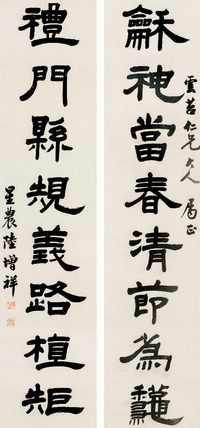 龢神當春清節為龝
雲苔仁兄大人 屬正
禮門縣規義路植矩
星農陸增祥